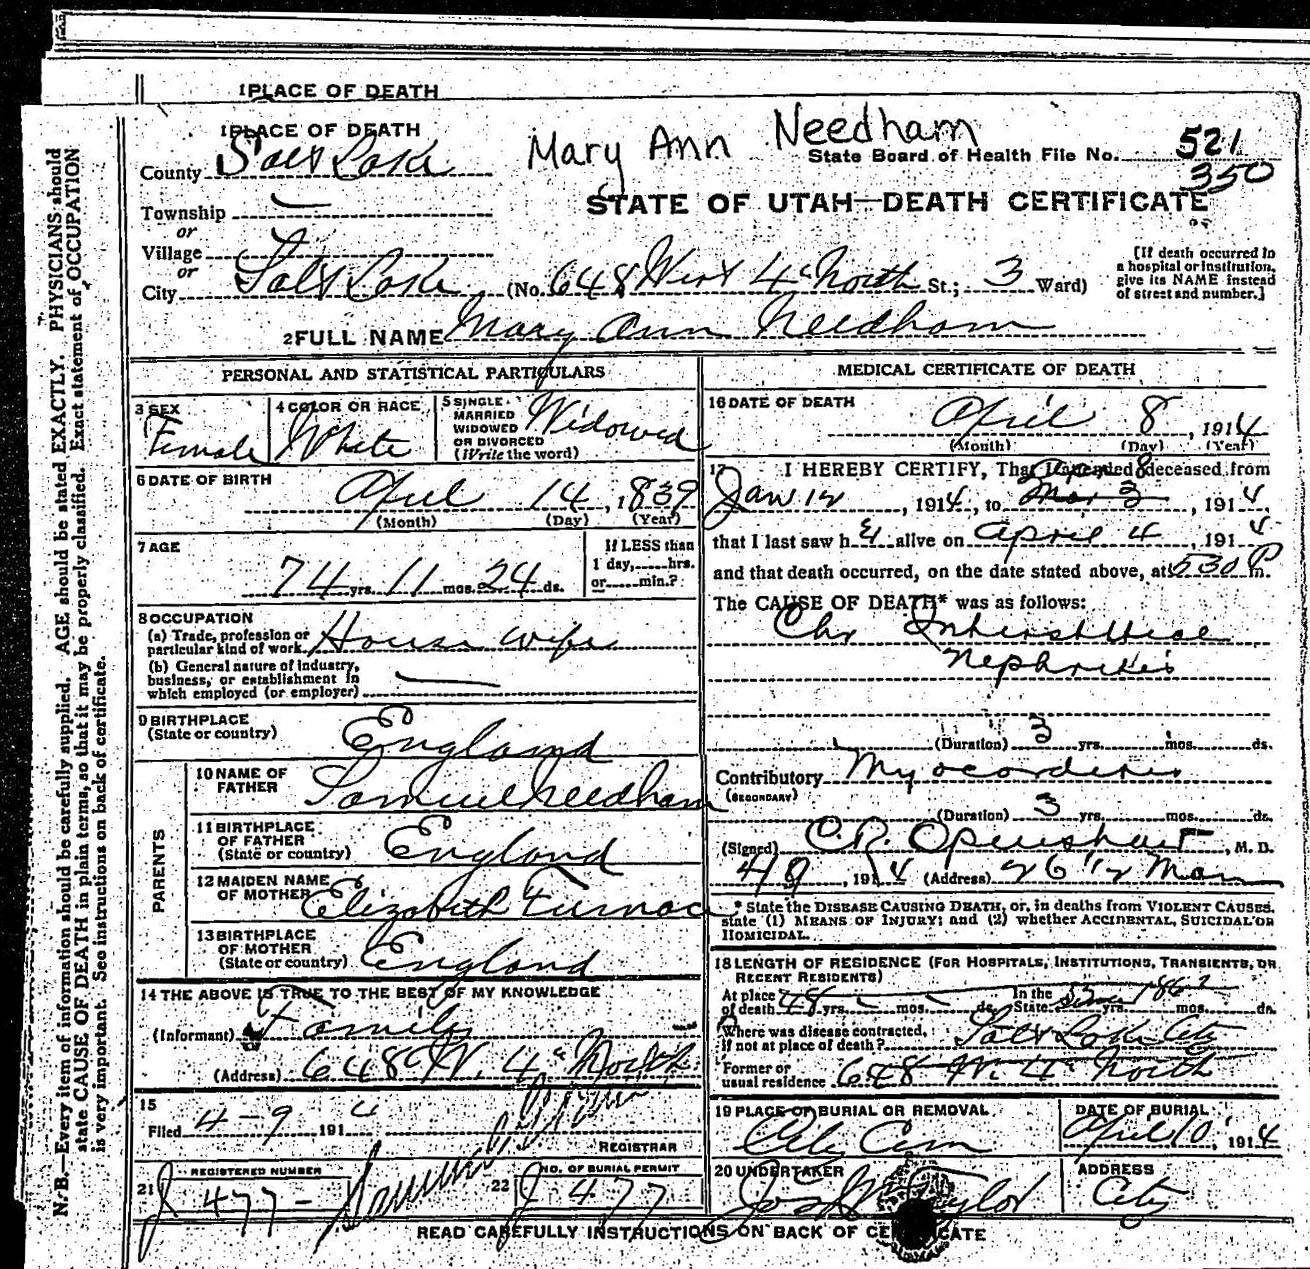 1 PLACE OF DEATH
1 PLACE OF DEATH
Mary Ann Needham
County Salt Lake
State Board of Health File No. 521
350
Township —
or
STATE OF UTAH—DEATH CERTIFICATE
Village
or
City Salt Lake (No. 648 West 4" North St.; 3 Ward)
[If death occurred in
a hospital or institution,
give its NAME instead
of street and number.]
2 FULL NAME Mary Ann Needham
PERSONAL AND STATISTICAL PARTICULARS
3 SEX
Female
4 COLOR OR RACE
White
5 SINGLE
MARRIED
WIDOWED
OR DIVORCED
(Write the word)
Widowed
6 DATE OF BIRTH
April 14, 1839
(Month) (Day) (Year)
7 AGE
74 yrs. 11 mos. 24 ds.
If LESS than
1 day,......hrs.
or......min.?
8 OCCUPATION
(a) Trade, profession or
particular kind of work House wife
(b) General nature of industry,
business, or establishment in
which employed (or employer) —
9 BIRTHPLACE
(State or country)
England
PARENTS
10 NAME OF
FATHER
Samuel Needham
11 BIRTHPLACE
OF FATHER
(State or country)
England
12 MAIDEN NAME
OF MOTHER
Elizabeth Furnace
13 BIRTHPLACE
OF MOTHER
(State or country)
England
14 THE ABOVE IS TRUE TO THE BEST OF MY KNOWLEDGE
(Informant) Family
(Address) 648 W. 4" North
15
Filed 4-9 1914
REGISTRAR
21 REGISTERED NUMBER
J 477-
22 NO. OF BURIAL PERMIT
J 477
MEDICAL CERTIFICATE OF DEATH
16 DATE OF DEATH
April 8, 1914
(Month) (Day) (Year)
17 I HEREBY CERTIFY, That I attended deceased from
Jan 12, 1914, to Mar 3, 1914,
that I last saw her alive on April 4, 1914
and that death occurred, on the date stated above, at 530 P m.
The CAUSE OF DEATH* was as follows:
Chr Interstitial
Nephritis
(Duration) 3 yrs. mos. ds.
Contributory Myocarditis
(SECONDARY)
(Duration) 3 yrs. mos. ds.
(Signed) , M. D.
4/9, 1914 (Address) Main
* State the DISEASE CAUSING DEATH, or, in deaths from VIOLENT CAUSES,
state (1) MEANS OF INJURY; and (2) whether ACCIDENTAL, SUICIDAL OR
HOMICIDAL.
18 LENGTH OF RESIDENCE (FOR HOSPITALS, INSTITUTIONS, TRANSIENTS, OR
RECENT RESIDENTS)
At place
of death 48 yrs. mos. ds.
In the
State since 1862 yrs. mos. ds.
Where was disease contracted,
if not at place of death? Salt Lake City
Former or
usual residence 648 W. 4" North
19 PLACE OF BURIAL OR REMOVAL
City Cem
DATE OF BURIAL
April 10, 1914
20 UNDERTAKER
Jos Taylor
ADDRESS
City
READ CAREFULLY INSTRUCTIONS ON BACK OF CERTIFICATE
N. B.—Every item of information should be carefully supplied. AGE should be stated EXACTLY. PHYSICIANS should
state CAUSE OF DEATH in plain terms, so that it may be properly classified. Exact statement of OCCUPATION
is very important. See instructions on back of certificate.